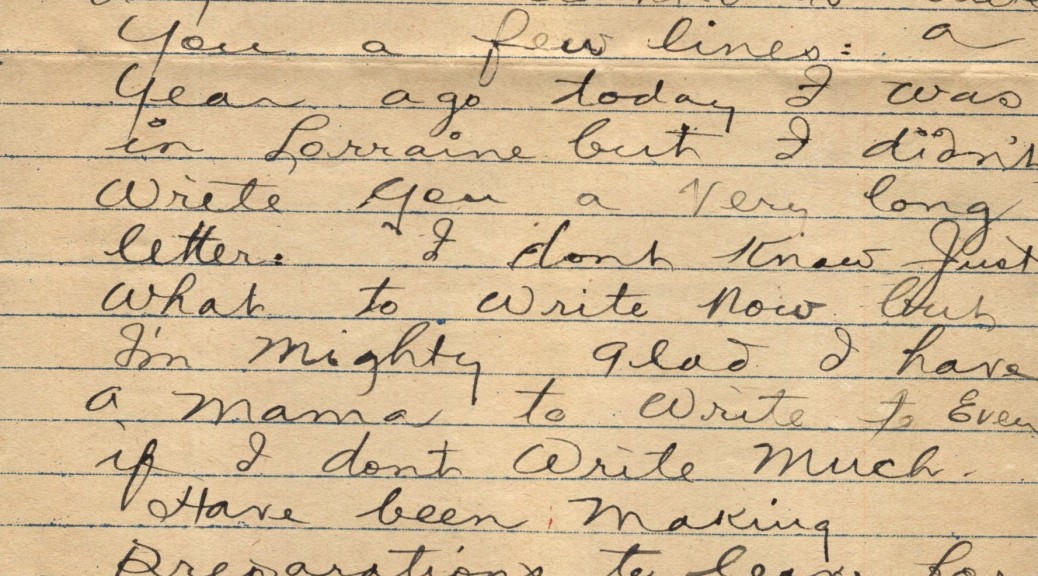 You a few lines: a
Year ago today I was
in Lorraine but I didn't
Write you a Very long
letter. I dont Know Just
What to Write Now but
I'm Mighty Glad I have
a Mama to Write to Even
if I dont Write Much.
Have been Making
Preparations to leave for